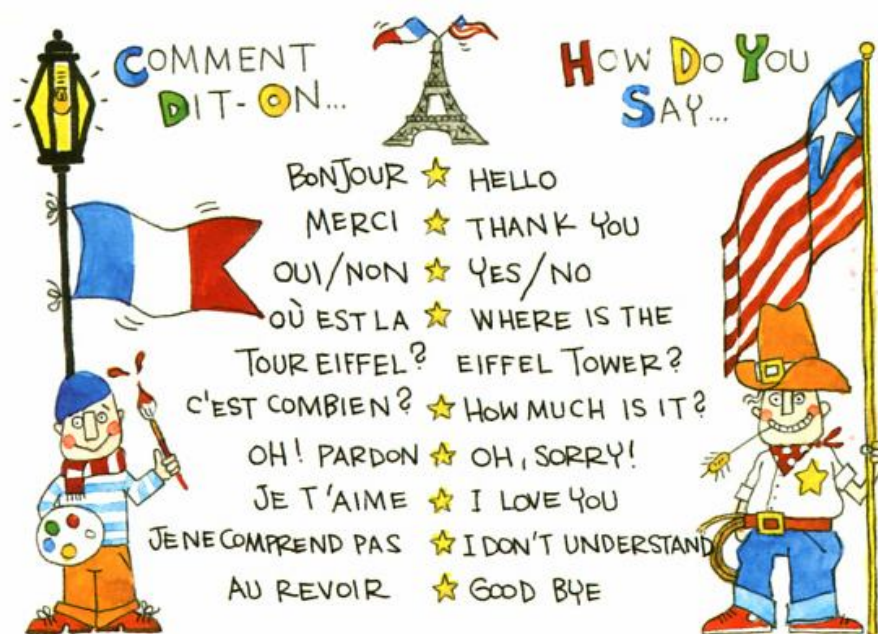 COMMENT
DIT-ON...
HOW DO YOU
SAY...
BONJOUR HELLO
MERCI THANK YOU
OUI/NON YES/NO
OÙ EST LA WHERE IS THE
TOUR EIFFEL? EIFFEL TOWER?
C'EST COMBIEN? HOW MUCH IS IT?
OH! PARDON OH, SORRY!
JE T'AIME I LOVE YOU
JE NE COMPREND PAS I DON'T UNDERSTAND
AU REVOIR GOOD BYE